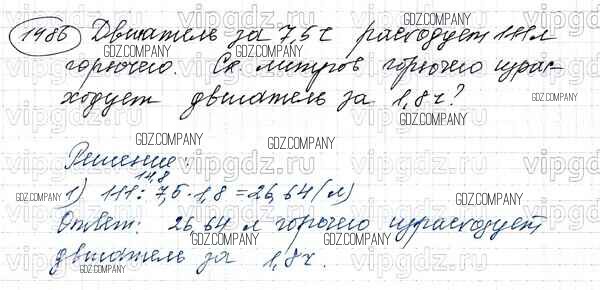 1486 Двигатель за 7,5 ч расходует 111 л
горючего. Ск. литров горючего израс-
ходует двигатель за 1,8 ч?
Решение:
14,8
1) 111 : 7,5 · 1,8 = 26,64 (л)
Ответ: 26,64 л горючего израсходует
двигатель за 1,8 ч.
GDZ.COMPANY
vipgdz.ru